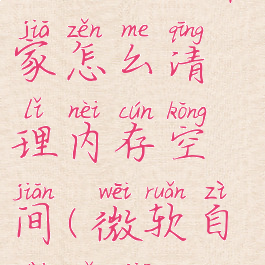 jiā zěn me qīng
家怎么清
lǐ nèi cún kōng
理内存空
jiān wēi ruǎn zì
间(微软自